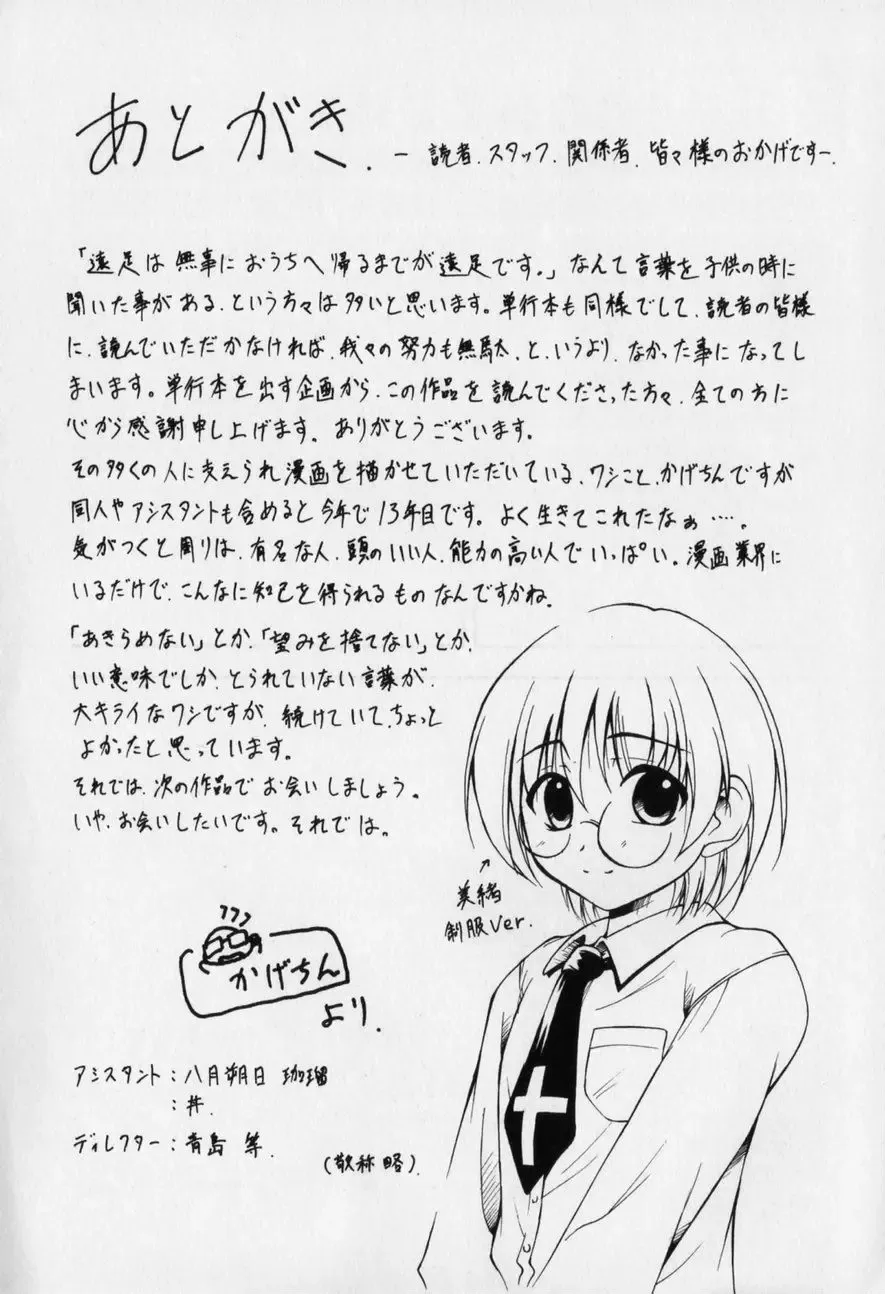 あとがき. ー 読者、スタッフ、関係者、皆々様のおかげですー.
「遠足は無事におうちへ帰るまでが遠足です。」なんて言葉を子供の時に
聞いた事がある、という方々は多いと思います。単行本も同様でして、読者の皆様
に、読んでいただかなければ、我々の努力も無駄、と、いうより、なかった事になってし
まいます。単行本を出す企画から、この作品を読んでくださった方々、全ての方に
心から感謝申し上げます。ありがとうございます。
その多くの人に支えられ漫画を描かせていただいている、ワシこと、かげちんですが
同人やアシスタントも含めると今年で13年目です。よく生きてこれたなぁ….。
気がつくと周りは、有名な人、頭のいい人、能力の高い人でいっぱい。漫画業界に
いるだけで、こんなに知己を得られるものなんですかね。
「あきらめない」とか、「望みを捨てない」とか、
いい意味でしか、とられていない言葉が、
大キライなワシですが、続けていて、ちょっと
よかったと思っています。
それでは、次の作品でお会いしましょう。
いや、お会いしたいです。それでは。
美緒
制服Ver.
かげちん
より.
アシスタント：八月朔日 珈瑠
：丼.
ディレクター：青島 等.
(敬称略).